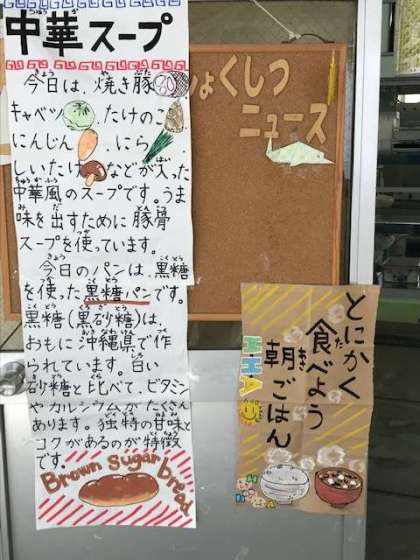 中華スープ
今日は、焼き豚
キャベツ、たけのこ
にんじん、にら
しいたけなどが入った
中華風のスープです。うま
味を出すために豚骨
スープを使っています。
今日のパンは、黒糖
を使った黒糖パンです。
黒糖(黒砂糖)は、
おもに沖縄県で作
られています。白い
砂糖と比べて、ビタミン
やカルシウムがたくさん
あります。独特の甘味と
コクがあるのが特徴
です。
Brown Sugar bread
ょくしつ
ニュース
とにかく
食べよう
朝ごはん